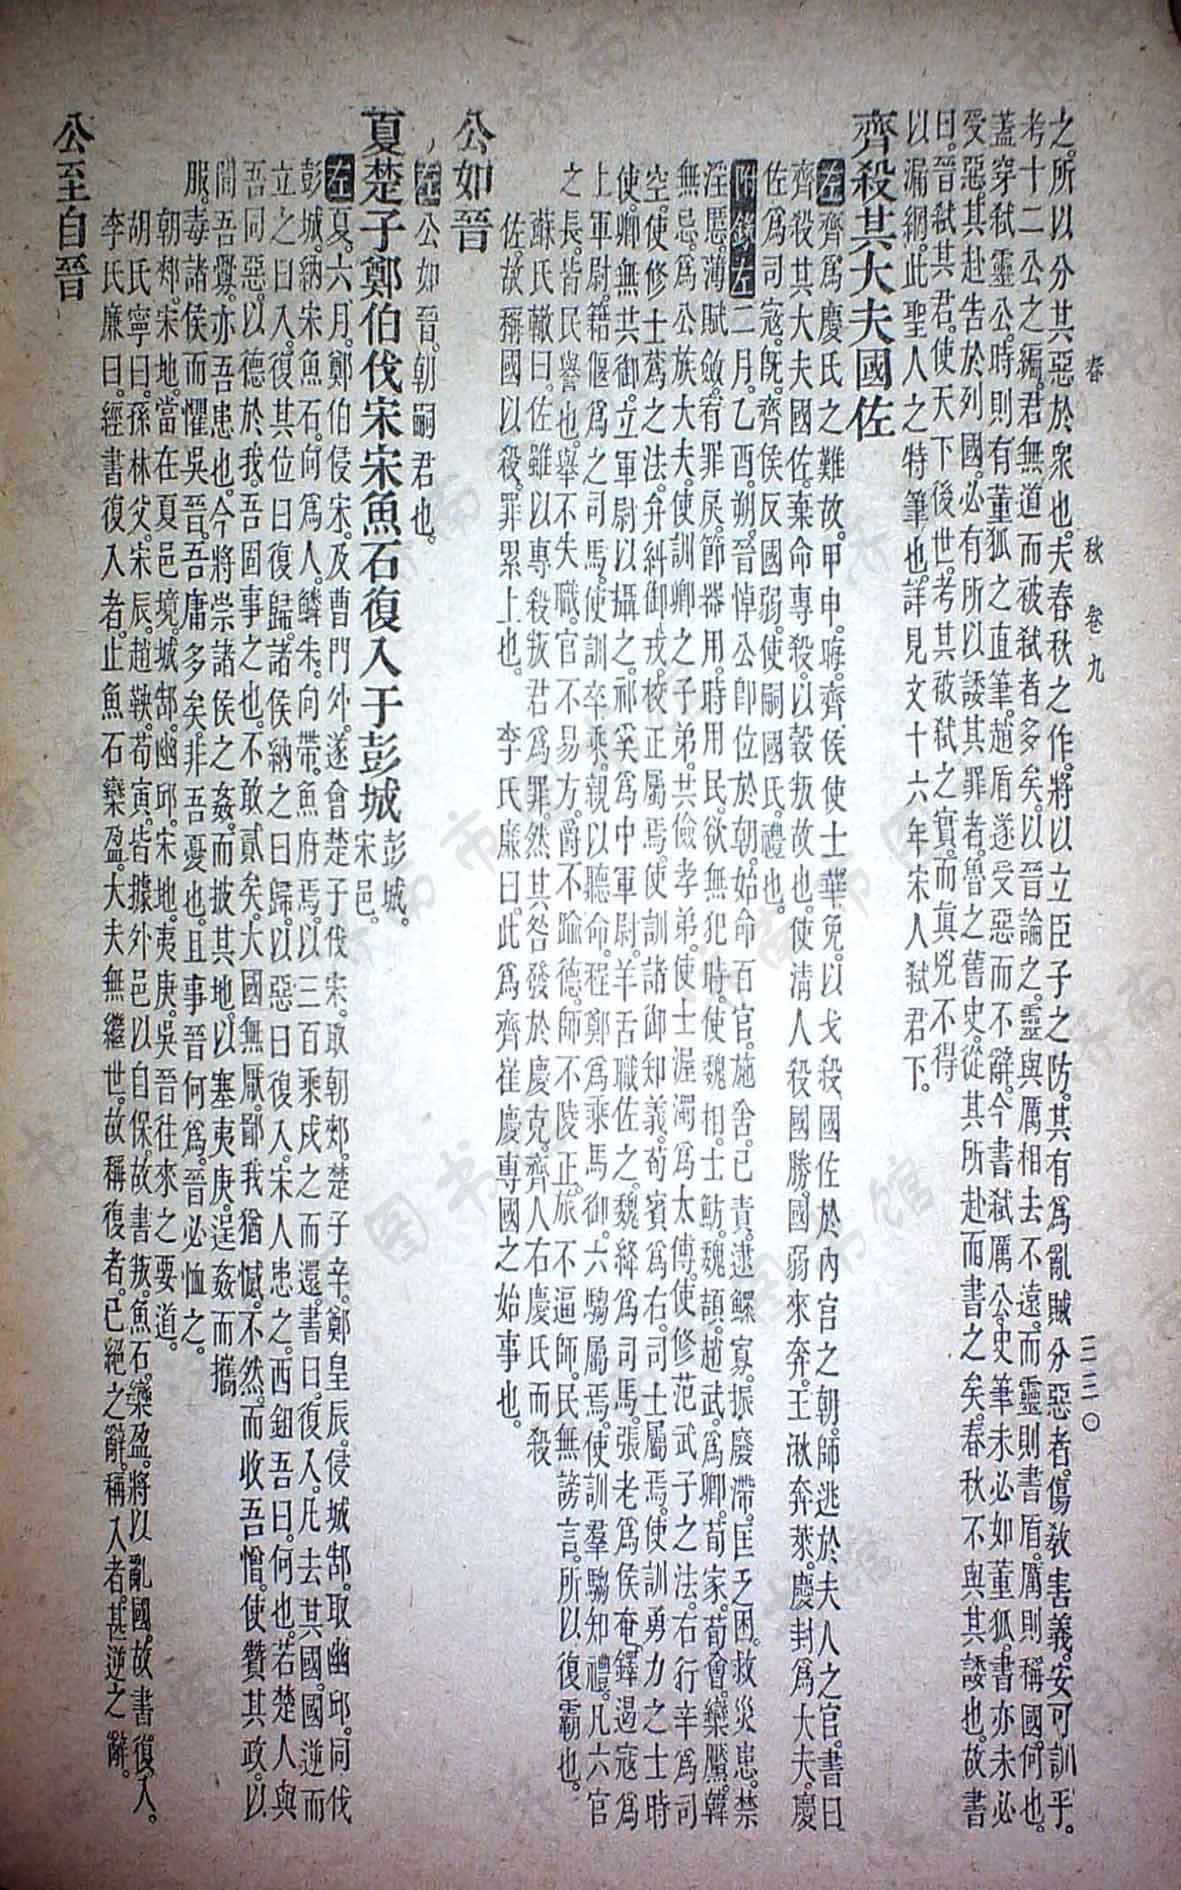 春秋 卷九 三三〇
之。所以分其惡於衆也。夫春秋之作。將以立臣子之防。其有爲亂賊分惡者。傷教害義。安可訓乎。
考十二公之編。君無道而被弒者多矣。以晉論之。靈與厲相去不遠。而靈則書盾。厲則稱國。何也。
蓋穿弒靈公。時則有董狐之直筆。趙盾遂受惡而不辭。今書弒厲公。史筆未必如董狐。書亦未必
受惡。其赴告於列國。必有所以諉其罪者。魯之舊史。從其所赴而書之矣。春秋不與其諉也。故書
曰。晉弒其君。使天下後世。考其被弒之實。而眞兇不得
以漏網。此聖人之特筆也。詳見文十六年宋人弒君下。
齊殺其大夫國佐
左齊爲慶氏之難故。甲申。晦。齊侯使士華免。以戈殺國佐於內宮之朝。師逃於夫人之宮。書曰
齊殺其大夫國佐。棄命專殺。以穀叛故也。使清人殺國勝。國弱來奔。王湫奔萊。慶封爲大夫。慶
佐爲司寇。旣。齊侯反國弱。使嗣國氏。禮也。
附錄左二月。乙酉。朔。晉悼公卽位於朝。始命百官。施舍。已責。逮鰥寡。振廢滯。匡乏困。救災患。禁
淫慝。薄賦斂。宥罪戾。節器用。時用民。欲無犯時。使魏相。士魴。魏頡。趙武。爲卿。荀家。荀會。欒黶。韓
無忌。爲公族大夫。使訓卿之子弟。共儉孝弟。使士渥濁爲太傅。使修范武子之法。右行辛爲司
空。使修士蒍之法。弁糾御戎。校正屬焉。使訓諸御知義。荀賓爲右。司士屬焉。使訓勇力之士時
使。卿無共御。立軍尉以攝之。祁奚爲中軍尉。羊舌職佐之。魏絳爲司馬。張老爲侯奄。鐸遏寇爲
上軍尉。籍偃爲之司馬。使訓卒乘。親以聽命。程鄭爲乘馬御。六騶屬焉。使訓羣騶知禮。凡六官
之長。皆民譽也。舉不失職。官不易方。爵不踰德。師不陵正。旅不逼師。民無謗言。所以復霸也。
蘇氏轍曰。佐雖以專殺叛君爲罪。然其咎發於慶克。齊人右慶氏而殺
佐。故稱國以殺。罪累上也。 李氏廉曰。此爲齊崔慶專國之始事也。
公如晉
左公如晉。朝嗣君也。
夏楚子鄭伯伐宋宋魚石復入于彭城 彭城。宋邑。
左夏。六月。鄭伯侵宋。及曹門外。遂會楚子伐宋。取朝郟。楚子辛。鄭皇辰。侵城郜。取幽邱。同伐
彭城。納宋魚石。向爲人。鱗朱。向帶。魚府焉。以三百乘戍之而還。書曰。復入。凡去其國。國逆而
立之曰入。復其位曰復歸。諸侯納之曰歸。以惡曰復入。宋人患之。西鉏吾曰。何也。若楚人與
吾同惡。以德於我。吾固事之也。不敢貳矣。大國無厭。鄙我猶憾。不然。而收吾憎。使贊其政。以
間吾釁。亦吾患也。今將崇諸侯之姦。而披其地。以塞夷庚。逞姦而攜
服。毒諸侯而懼吳晉。吾庸多矣。非吾憂也。且事晉何爲。晉必恤之。
朝郟。宋地。當在夏邑境。城郜。幽邱。宋地。夷庚。吳晉往來之要道。
胡氏寧曰。孫林父。宋辰。趙鞅。荀寅。皆據外邑以自保。故書叛。魚石。欒盈。將以亂國。故書復入。
李氏廉曰。經書復入者。止魚石欒盈。大夫無繼世。故稱復者。已絕之辭。稱入者。甚逆之辭。
公至自晉